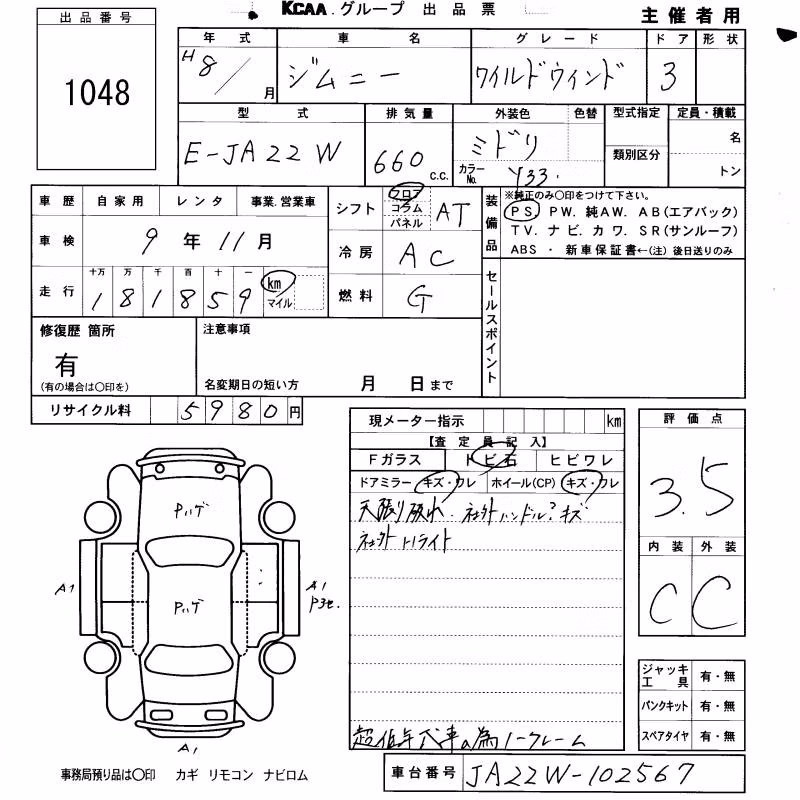 KCAA.グループ 出品票
主催者用
出品番号
1048
年式 車名 グレード ドア 形状
H8/ 月 ジムニー ワイルドウィンド 3
型式 排気量 外装色 色替 型式指定 定員・積載
E-JA22W 660 c.c. ミドリ 名
カラーNo. Y33. 類別区分 トン
車歴 自家用 レンタ 事業.営業車
シフト フロア コラム パネル AT
装備品 ※純正のみ○印をつけて下さい。
PS. PW. 純AW. AB(エアバック)
TV. ナビ. カワ. SR(サンルーフ)
ABS ・ 新車保証書←(注) 後日送りのみ
車検 9年11月
冷房 AC
走行 十万 万 千 百 十 一
181859 km マイル
燃料 G
セールスポイント
修復歴 箇所
有
(有の場合は○印を)
注意事項
名変期日の短い方 月 日まで
リサイクル料 5980円
現メーター指示 km
【査定員記入】
Fガラス トビ石 ヒビワレ
ドアミラー キズ・ワレ ホイール(CP) キズ・ワレ
天張り破れ. 社外ハンドル? キズ
社外Hライト
超低年式車の為ノークレーム
評価点
3.5
内装 外装
C C
Pハゲ
Pハゲ
A1
A1
P3セ.
A1
ジャッキ工具 有・無
パンクキット 有・無
スペアタイヤ 有・無
事務局預り品は○印 カギ リモコン ナビロム
車台番号 JA22W-102567